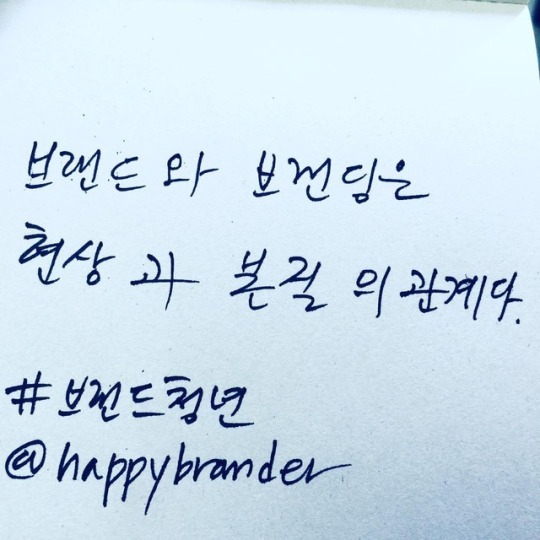 브랜드와 브랜딩은
현상과 본질의 관계다.
#브랜드청년
@happybrander